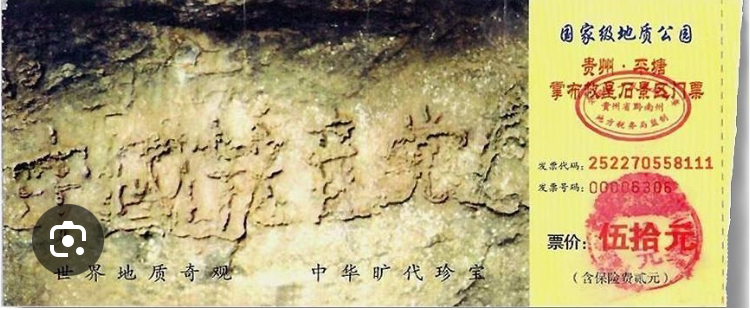 中國共産党亡
世界地质奇观 中华旷代珍宝
国家级地质公园
贵州·平塘
掌布救星石景区门票
贵州省黔南州
地方税务局监制
发票代码: 252270558111
发票号码: 00006306
票价: 伍拾元
(含保险费贰元)